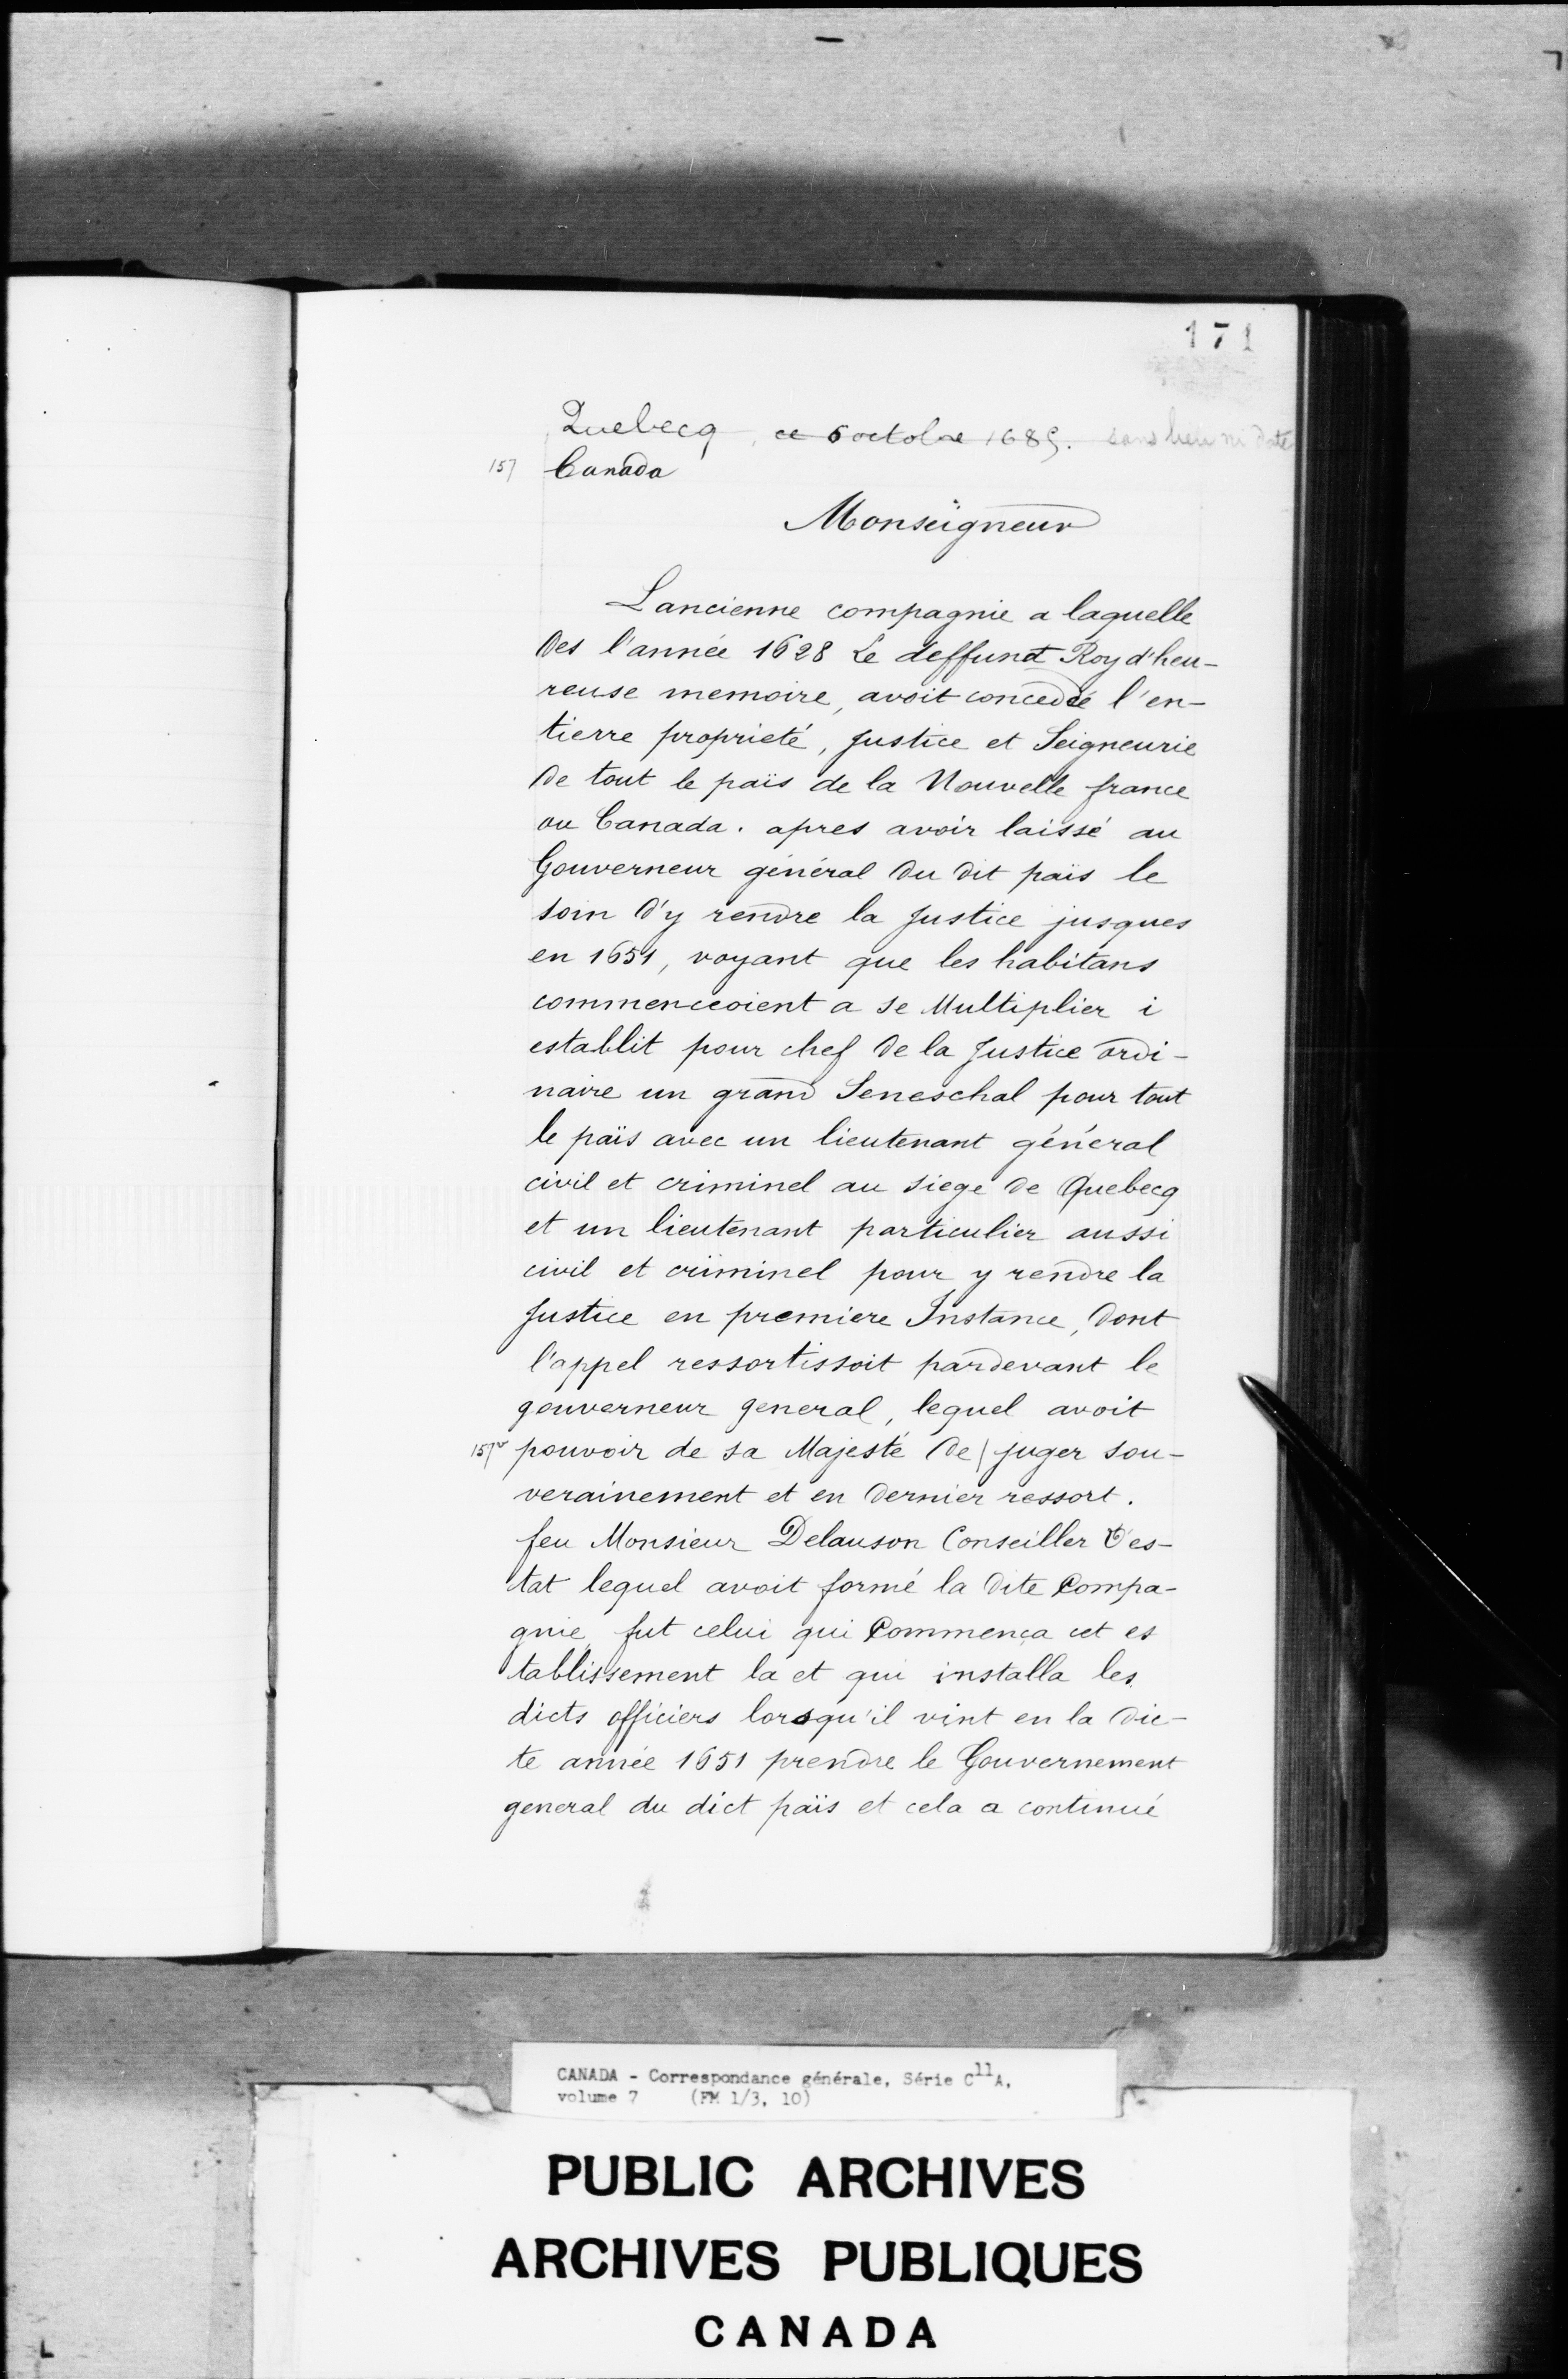 171
Quebecq, ce 6 octobre 1685. sans lieu ni date
157 Canada
Monseigneur
Lancienne compagnie a laquelle
des l'année 1628 Le deffunct Roy d'heu-
reuse memoire, avoit concedé l'en-
tierre proprieté, Justice et Seigneurie
de tout le païs de la Nouvelle france
ou Canada. apres avoir laissé au
Gouverneur général du dit païs le
soin d'y rendre la Justice jusques
en 1651, voyant que les habitans
commenceoient a se Multiplier i
establit pour chef de la Justice ordi-
naire un grand Seneschal pour tout
le païs avec un lieutenant général
civil et criminel au siege de Quebecq
et un lieutenant particulier aussi
civil et criminel pour y rendre la
Justice en premiere Instance, dont
l'appel ressortissoit pardevant le
gouverneur general, lequel avoit
157v pouvoir de sa Majesté de | juger sou-
verainement et en dernier ressort.
feu Monsieur Delauson Conseiller d'es-
tat lequel avoit formé la dite Compa-
gnie, fut celui qui Commença cet es
tablissement la et qui installa les
dicts officiers lorsqu'il vint en la dic-
te année 1651 prendre le Gouvernement
general du dict païs et cela a continué
CANADA - Correspondance générale, Série C11A,
volume 7 (FM 1/3, 10)
PUBLIC ARCHIVES
ARCHIVES PUBLIQUES
CANADA